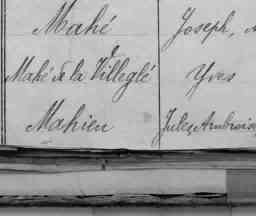 Mahé Joseph,
Mahé de la Villeglé Yves
Mahieu Jules Ambroise